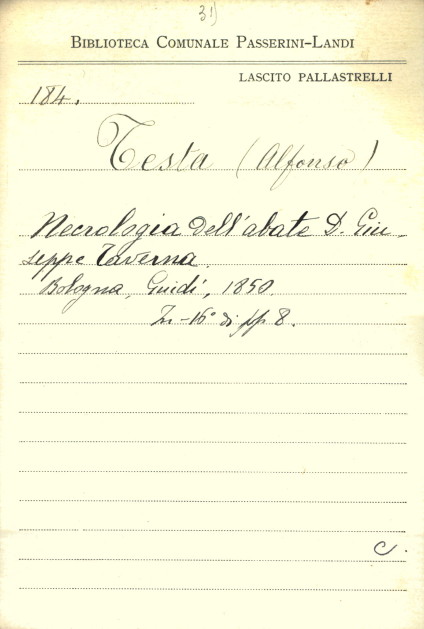 31)
BIBLIOTECA COMUNALE PASSERINI-LANDI
LASCITO PALLASTRELLI
184.
Testa (Alfonso)
Necrologia dell'abate D. Giu-
seppe Taverna.
Bologna, Guidi, 1850.
In-16° di pp 8.
C.